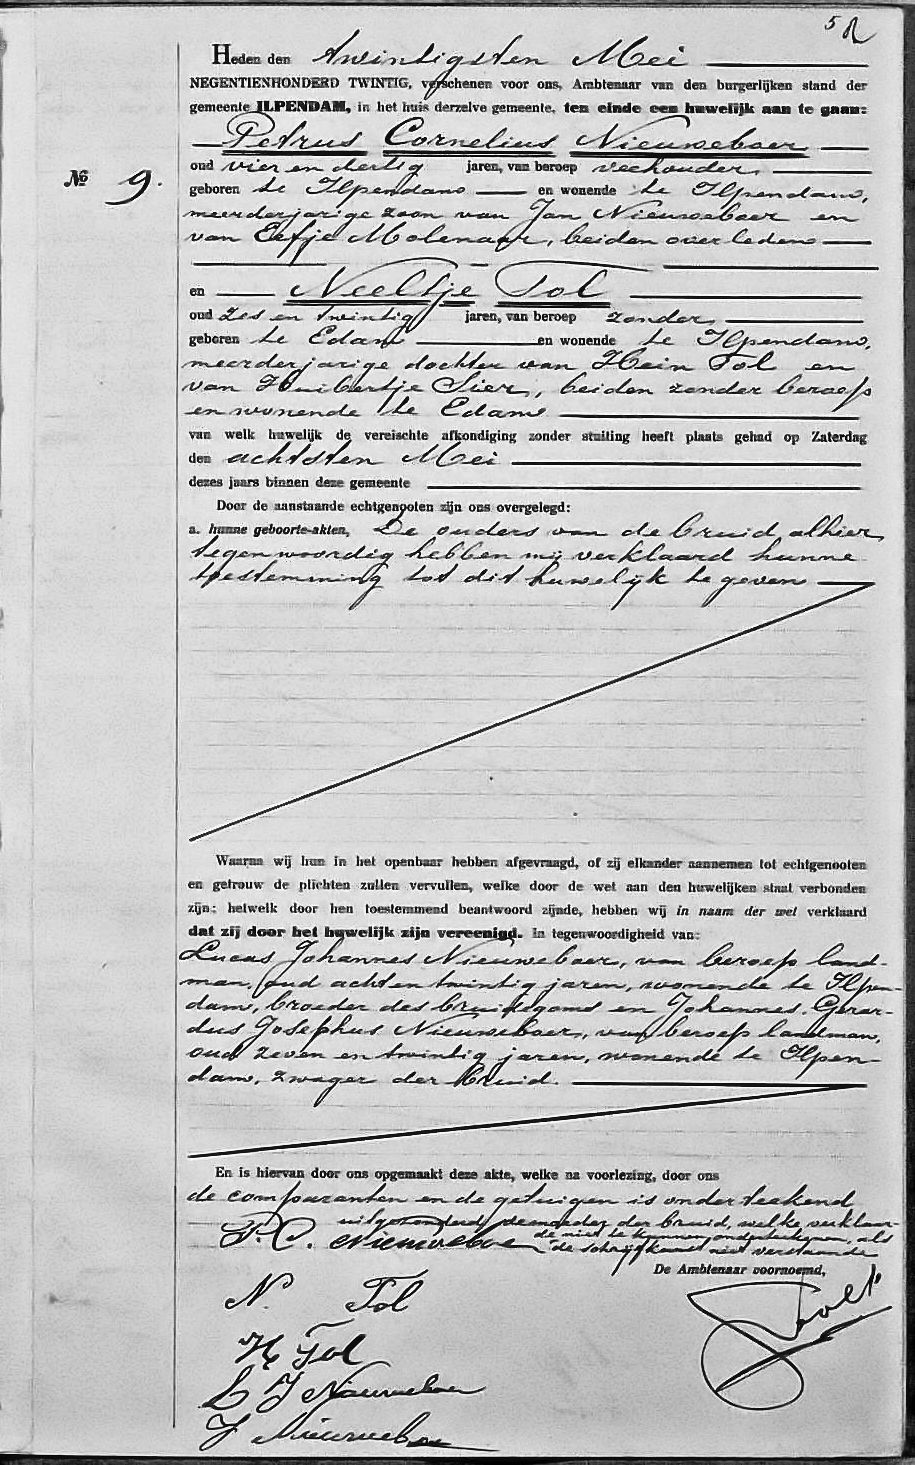 5
Heden den twintigsten Mei
NEGENTIENHONDERD TWINTIG, verschenen voor ons, Ambtenaar van den burgerlijken stand der
gemeente ILPENDAM, in het huis derzelve gemeente, ten einde een huwelijk aan te gaan:
Petrus Cornelius Nieuweboer
oud vier en dertig jaren, van beroep veehouder,
№ 9.
geboren te Ilpendam en wonende te Ilpendam,
meerderjarige zoon van Jan Nieuweboer en
van Eefje Molenaar, beiden overleden
en Neeltje Tol
oud zes en twintig jaren, van beroep zonder,
geboren te Edam en wonende te Ilpendam,
meerderjarige dochter van Hein Tol en
van Huibertje Sier, beiden zonder beroep
en wonende te Edam
van welk huwelijk de vereischte afkondiging zonder stuiting heeft plaats gehad op Zaterdag
den achtsten Mei
dezes jaars binnen deze gemeente
Door de aanstaande echtgenooten zijn ons overgelegd:
a. hunne geboorte-akten, De ouders van de bruid alhier
tegenwoordig hebben mij verklaard hunne
toestemming tot dit huwelijk te geven
Waarna wij hun in het openbaar hebben afgevraagd, of zij elkander aannemen tot echtgenooten
en getrouw de plichten zullen vervullen, welke door de wet aan den huwelijken staat verbonden
zijn; hetwelk door hen toestemmend beantwoord zijnde, hebben wij in naam der wet verklaard
dat zij door het huwelijk zijn vereenigd. In tegenwoordigheid van:
Lucas Johannes Nieuweboer, van beroep land-
man, oud acht en twintig jaren, wonende te Ilpen-
dam, broeder des bruidegoms en Johannes Gerar-
dus Josephus Nieuweboer, van beroep landman,
oud zeven en twintig jaren, wonende te Ilpen-
dam, zwager der bruid.
En is hiervan door ons opgemaakt deze akte, welke na voorlezing, door ons
de comparanten en de getuigen is onderteekend
uitgezonderd de moeder der bruid, welke verklaar-
de niet te kunnen onderteekenen, als
de schrijfkunst niet verstaande
P. C. Nieuweboer
De Ambtenaar voornoemd,
N. Tol
H Tol
L J Nieuweboer
J Nieuweboer